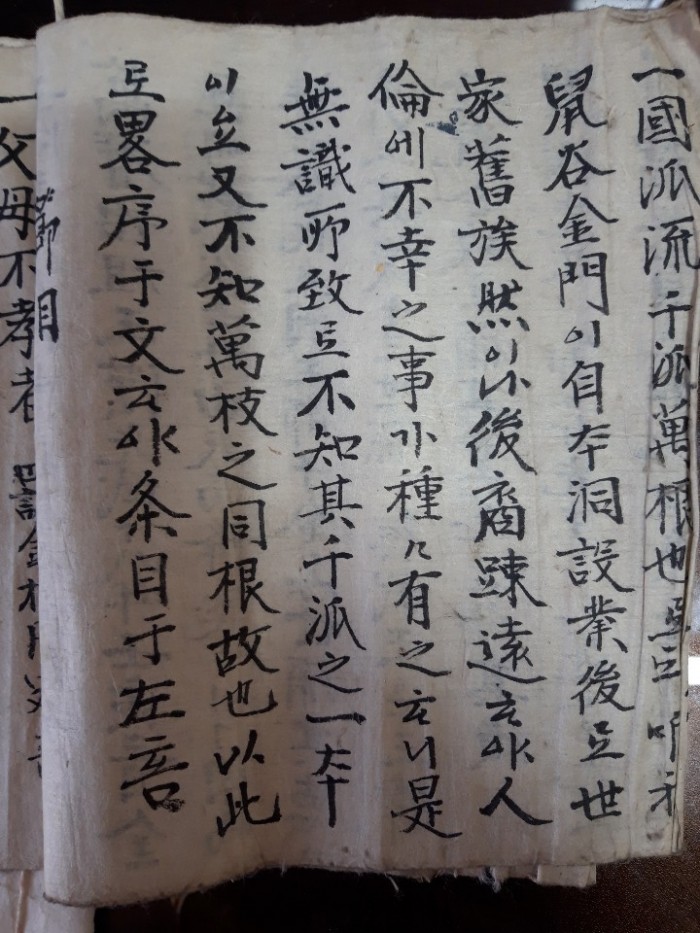 一國派流千派萬根也
鼠谷金門이自夲洞設業後로世
家舊族然이나後裔踈遠ᄒᆞ야人
倫에不幸之事가種々有之ᄒᆞ니是
無識所致로不知其千派之一夲
이요又不知萬枝之同根故也以此
로畧序于文ᄒᆞ야条目于左홈
節目
一父母不孝者